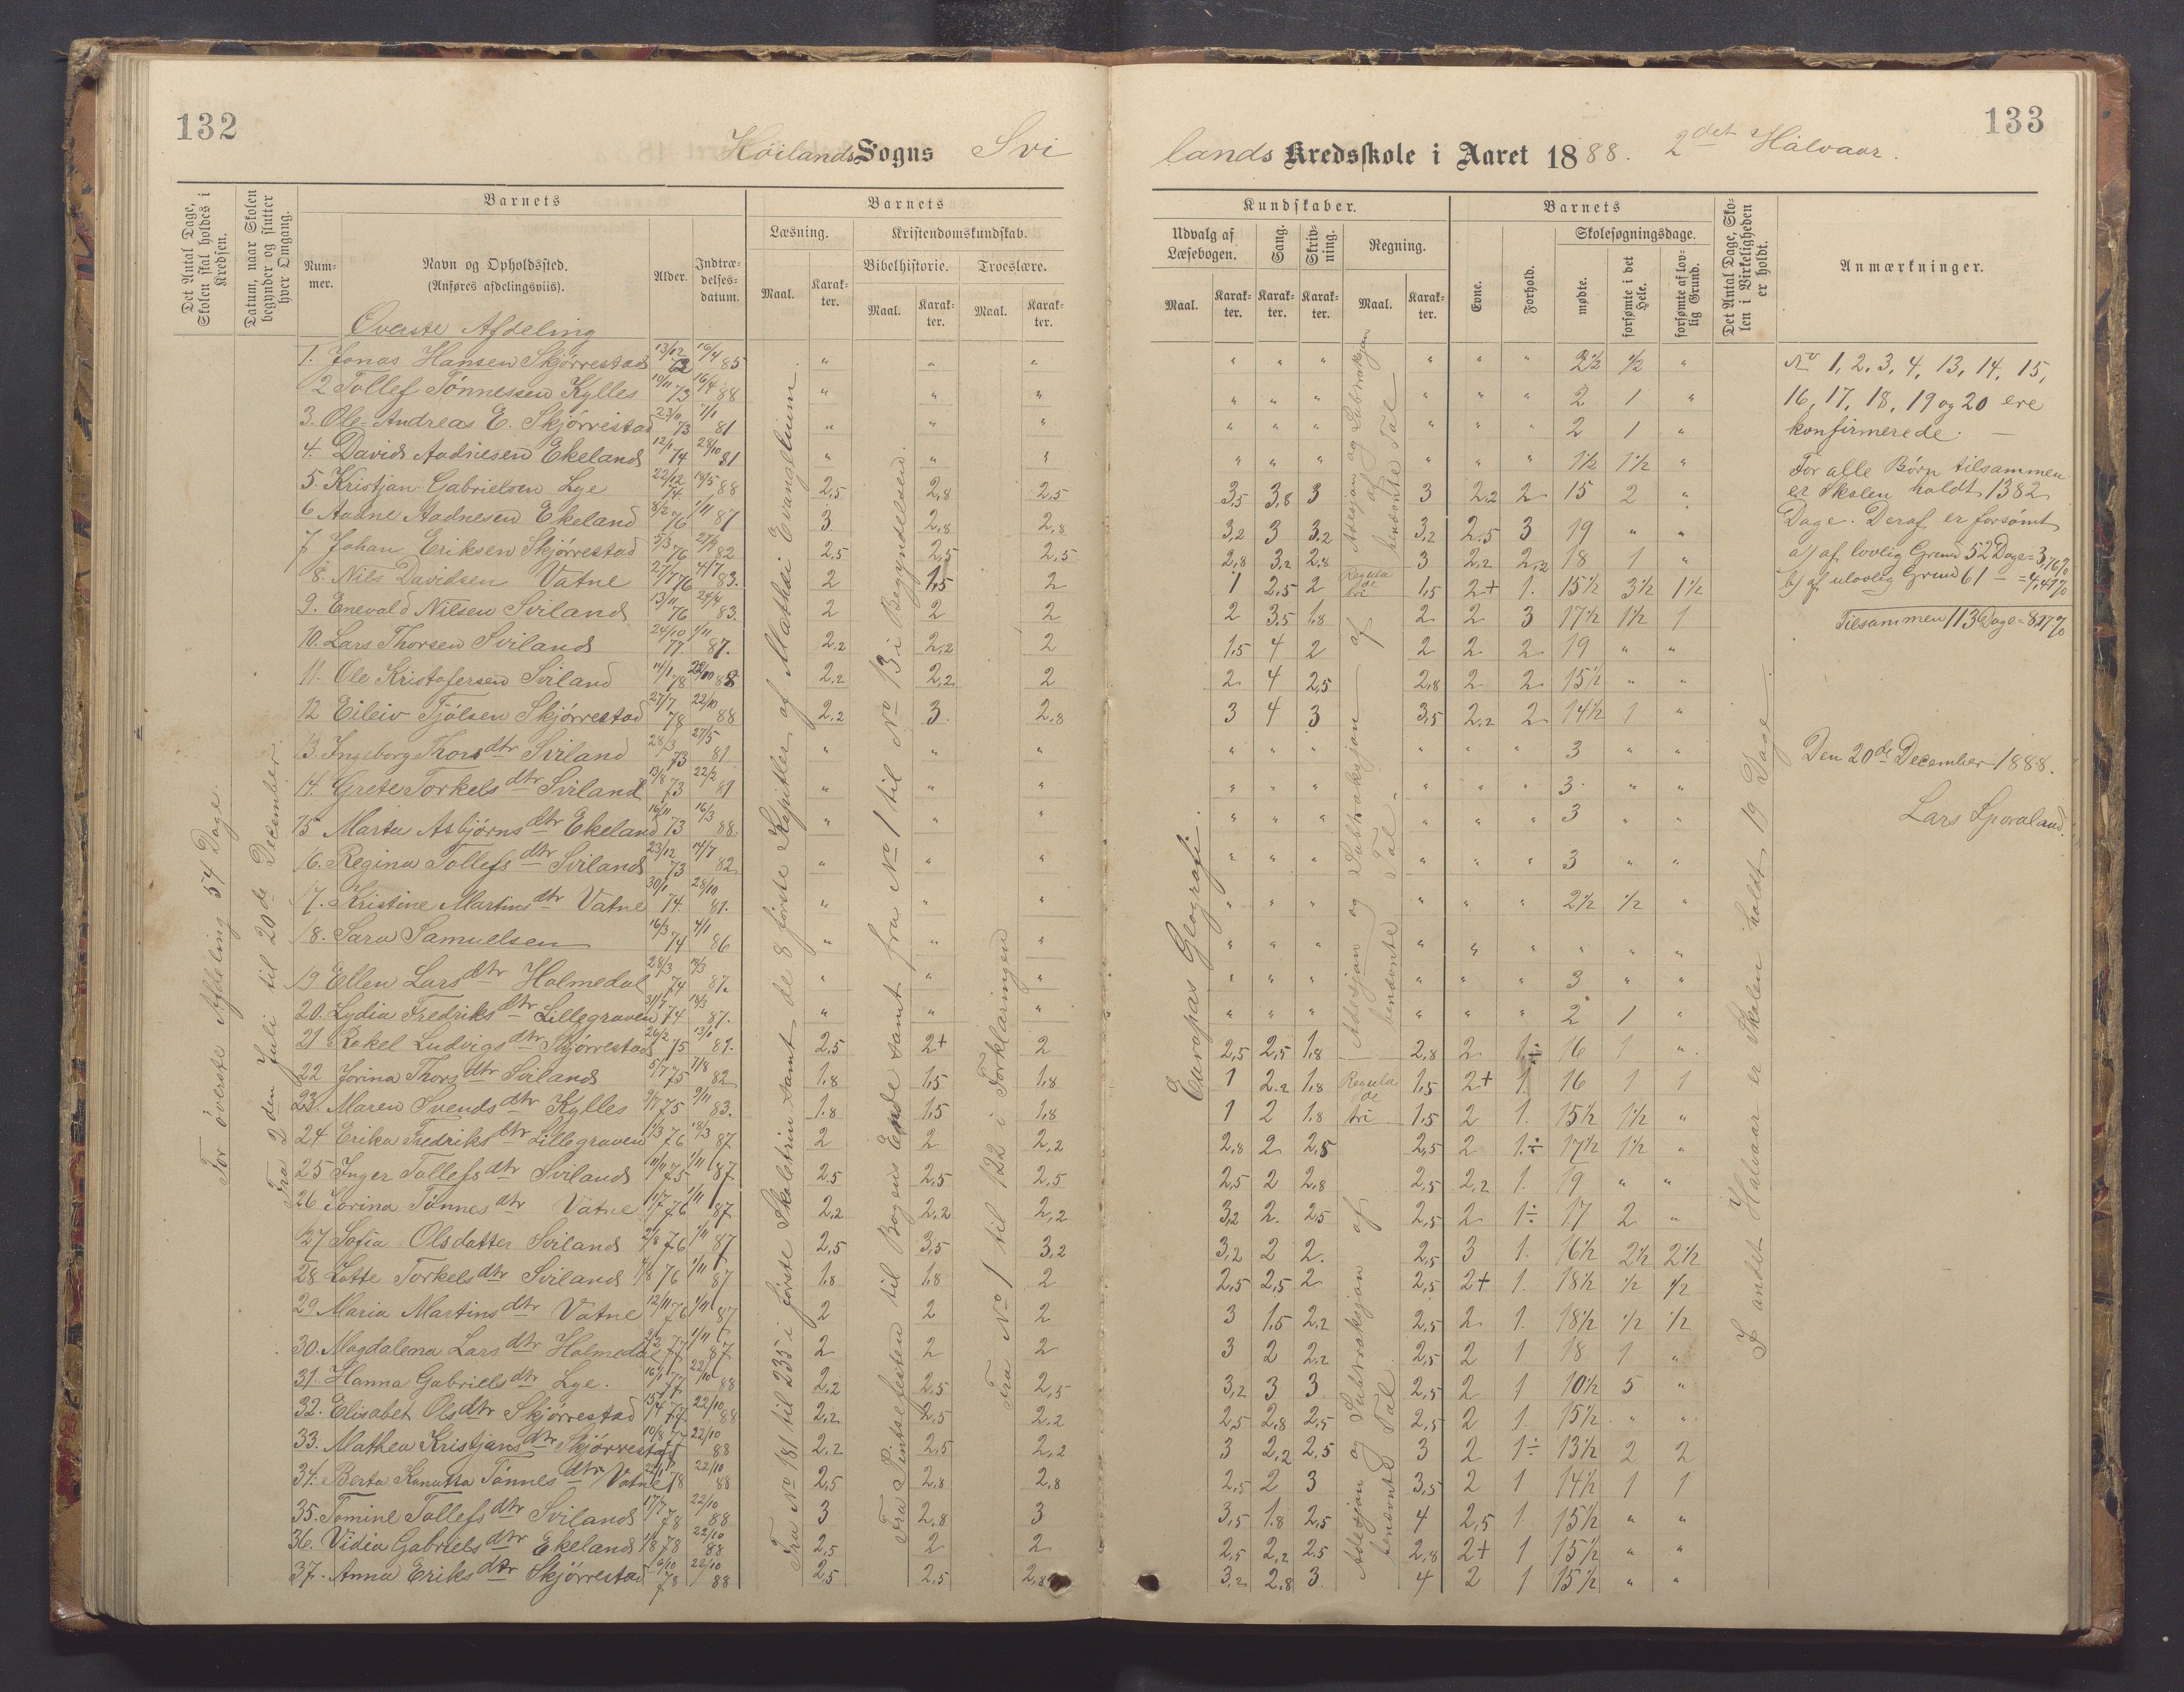 132
Höilands Sogns Svi
Det Antal Dage, Skolen skal holdes i Kredsen.
Datum, naar Skolen begynder og slutter hver Omgang.
Barnets
Num-
mer.
Navn og Opholdssted.
(Anføres afdelingsviis).
Alder.
Indtræ-
delses-
datum.
Barnets
Læsning.
Kristendomskundskab.
Bibelhistorie.
Troeslære.
Maal.
Karak-
ter.
Maal.
Karak-
ter.
Maal.
Karak-
ter.
For överste Afdeling 54 Dage.
Fra 2den Juli til 20de December.
Fra No 181 til 235 i förste Skoletrin samt de 8 förste Kapitler af Mathæi Evangelium.
Fra Pintsefesten til Bogens Ende samt fra No 1 til No 13 i Begyndelsen.
Fra No 1 til 122 i Forklaringen
Överste Afdeling
1. Jonas Hansen Skjörrestad 13/12 73 16/4 85 " " "
2 Tollef Tönnessen Kylles 10/11 73 16/4 88 " " "
3. Ole Andreas E. Skjörrestad 23/11 73 1/1 81 " " "
4. David Aadnesen Ekeland 12/1 74 28/10 81 " " "
5. Kristjan Gabrielsen Lye 22/12 74 14/5 88 2,5 2,8 2,5
6 Aadne Aadnesen Ekeland 8/2 76 1/11 87 3 2,8 2,8
7 Johan Eriksen Skjörrestad 5/3 76 27/9 82 2,5 2,5 2,5
8. Nils Davidsen Vatne 27/7 76 4/7 83. 2 1,5 2
9. Enevald Nilsen Sviland 13/11 76 24/4 83. 2 2 2
10. Lars Thorsen Sviland 24/10 77 1/11 87. 2,2 2,2 2
11. Ole Kristofersen Sviland 14/1 78 22/10 88 2,2 2,2 2
12 Eileiv Tjölsen Skjörrestad 27/7 78 22/10 88 2,2 3. 2,8
13. Ingeborg Thorsdtr Sviland 28/3 73 27/5 81 " " "
14. Grete Torkelsdtr Sviland 13/8 73 22/2 81 " " "
15 Marta Asbjörnsdtr Ekeland 16/11 73 16/3 88. " " "
16. Regina Tollefsdtr Sviland 23/12 73 14/7 82 " " "
17. Kristine Martinsdtr Vatne 30/1 74 28/10 81. " " "
18. Sara Samuelsen 16/3 74 4/1 86 " " "
19 Ellen Larsdtr Holmedal 28/3 74 14/3 87. " " "
20. Lydia Fredriksdtr Lillegraven 31/7 74 18/3 87. " " "
21 Rakel Ludvigsdtr Skjörrestad 26/2 75 13/1 81. 2,5 2+ 2
22 Jorina Thorsdtr Sviland 5/7 75 7/8 82 1.8 1,5 1,8
23. Maren Svendsdtr Kylles 9/7 75 9/11 83. 1.8 1,5 1,8
24 Erika Fredriksdtr Lillegraven 1/3 76 18/3 87 2 2 2,2
25 Inger Tollefsdtr Sviland 11/11 75 1/11 87 2,5 2,5 2,5
26 Jorina Tönnesdtr Vatne 11/7 76 1/11 87 2,2 2,2 2,2
27 Sofia Olsdatter Sviland 2/8 76 1/11 87 2,5 3,5 3,2
28 Lotte Torkelsdtr Sviland 7/8 76 1/11 87 1.8 1.8 2
29 Maria Martinsdtr Vatne 12/11 76 1/11 87 2 2 2
30. Magdalena Larsdtr Holmedal 2/3 77 1/11 87 2 2 2
31. Hanna Gabrielsdtr Lye. 16/1 77 22/10 88 2,2 2,5 2,5
32. Elisabet Olsdtr Skjörrestad 15/4 77 22/10 88 2,2 2,5 2,2
33. Mathea Kristjansdtr Skjörrestad 10/8 77 22/10 88 2,2 2,5 2,2
34. Berta Kanutta Tönnesdtr Vatne 22/1 78 22/10 88 2,5 2,8 2,8
35. Tomine Tollefsdtr Sviland 17/7 78 22/10 88 3 2,8 3
36. Vidia Gabrielsdtr Ekeland 1/8 78 22/10 88 2,5 2 2
37. Anna Eriksdtr Skjörrestad 19/10 78 22/10 88 2,5 2,5 2,8
133
lands Kredsskole i Aaret 1888. 2det Halvaar.
Kundskaber.
Udvalg af
Læsebogen.
Sang.
Skriv-
ning.
Regning.
Maal.
Karak-
ter.
Karak-
ter.
Karak-
ter.
Maal.
Karak-
ter.
Barnets
Evne.
Forhold.
Skolesøgningsdage.
mødte.
forsømte i det Hele.
forsømte af lov-
lig Grund.
Det Antal Dage, Sko-
len i Virkeligheden er holdt.
Anmærkninger.
Europas Geografi.
Adesjon og Subtraksjon af benævnte Tal
Regula de tri
Adesjon og Subtraksjon af benævnte Tal.
Regula de tri
Adesjon og Subtraksjon af benævnte Tal.
I andet Halvaar er Skolen holdt 19 Dage.
" " " " " " 2½ ½ "
" " " " " " 2 1 "
" " " " " " 2 1 "
" " " " " " 1½ 1½ "
3,5 3,8 3 3 2,2 2 15 2 "
3,2 3 3.2 3,2 2.5 3 19 " "
2,8 3,2 2,8 3 2,2 2,2 18 1 "
1 2,5 2 1,5 2+ 1. 15½ 3½ 1½
2 3,5 1.8 2 2 3 17½ 1½ 1
1,5 4 2 2 2 2 19 " "
2 4 2,5 2,8 2 2 15½ " "
3 4 3 3,5 2,2 2 14½ 1 "
" " " " " " 3 " "
" " " " " " 3 " "
" " " " " " 3 " "
" " " " " " 3 " "
" " " " " " 2½ ½ "
" " " " " " " " "
" " " " " " 3 " "
" " " " " " 2 1 "
2,5 2,5 1.8 2,8 2 1÷ 16 1 "
1 2.2 1,8 1,5 2+ 1. 16 1 1
1 2 1.8 1.5 2 1. 15½ 1½ "
2,8 2 2,5 2,5 2 1.÷ 17½ 1½ "
2,5 2 2,8 2,5 2,2 1. 19 " "
3,2 2. 2,5 2,5 2 1÷ 17 2 "
3,2 2 2. 2,5 3 1. 16½ 2½ 2½
2,5 2,5 2 2,5 2+ 1. 18½ ½ ½
3 1.5 2,2 2,5 2 1. 18½ ½ ½
3 2 2,2 2,5 2 1 18 1 "
3,2 3 3 2,5 2 1 10½ 5 "
2,5 2,8 2,5 2,5 2 1. 15½ " "
3 2,2 2,5 3 2 1÷ 13½ 2 2
2,5 2 3 3,5 2 1 14½ 1 1
3,5 1.8 2,5 4 2,5 1 15½ " "
2,5 2,2 2.5 2,8 2+ 1 15½ " "
3,2 2,8 3 4 2 1 15½ " "
No 1, 2, 3, 4, 13, 14, 15,
16, 17, 18, 19 og 20 ere
konfirmerede. —
For alle Börn tilsammen
er Skolen holdt 1382
Dage. Deraf er forsömt
a) af lovlig Grund 52 Dage = 3,76%
b) af ulovlig Grund 61 — = 4,41%
Tilsammen 113 Dage = 8,17%
Den 20de December 1888.
Lars Sporaland.